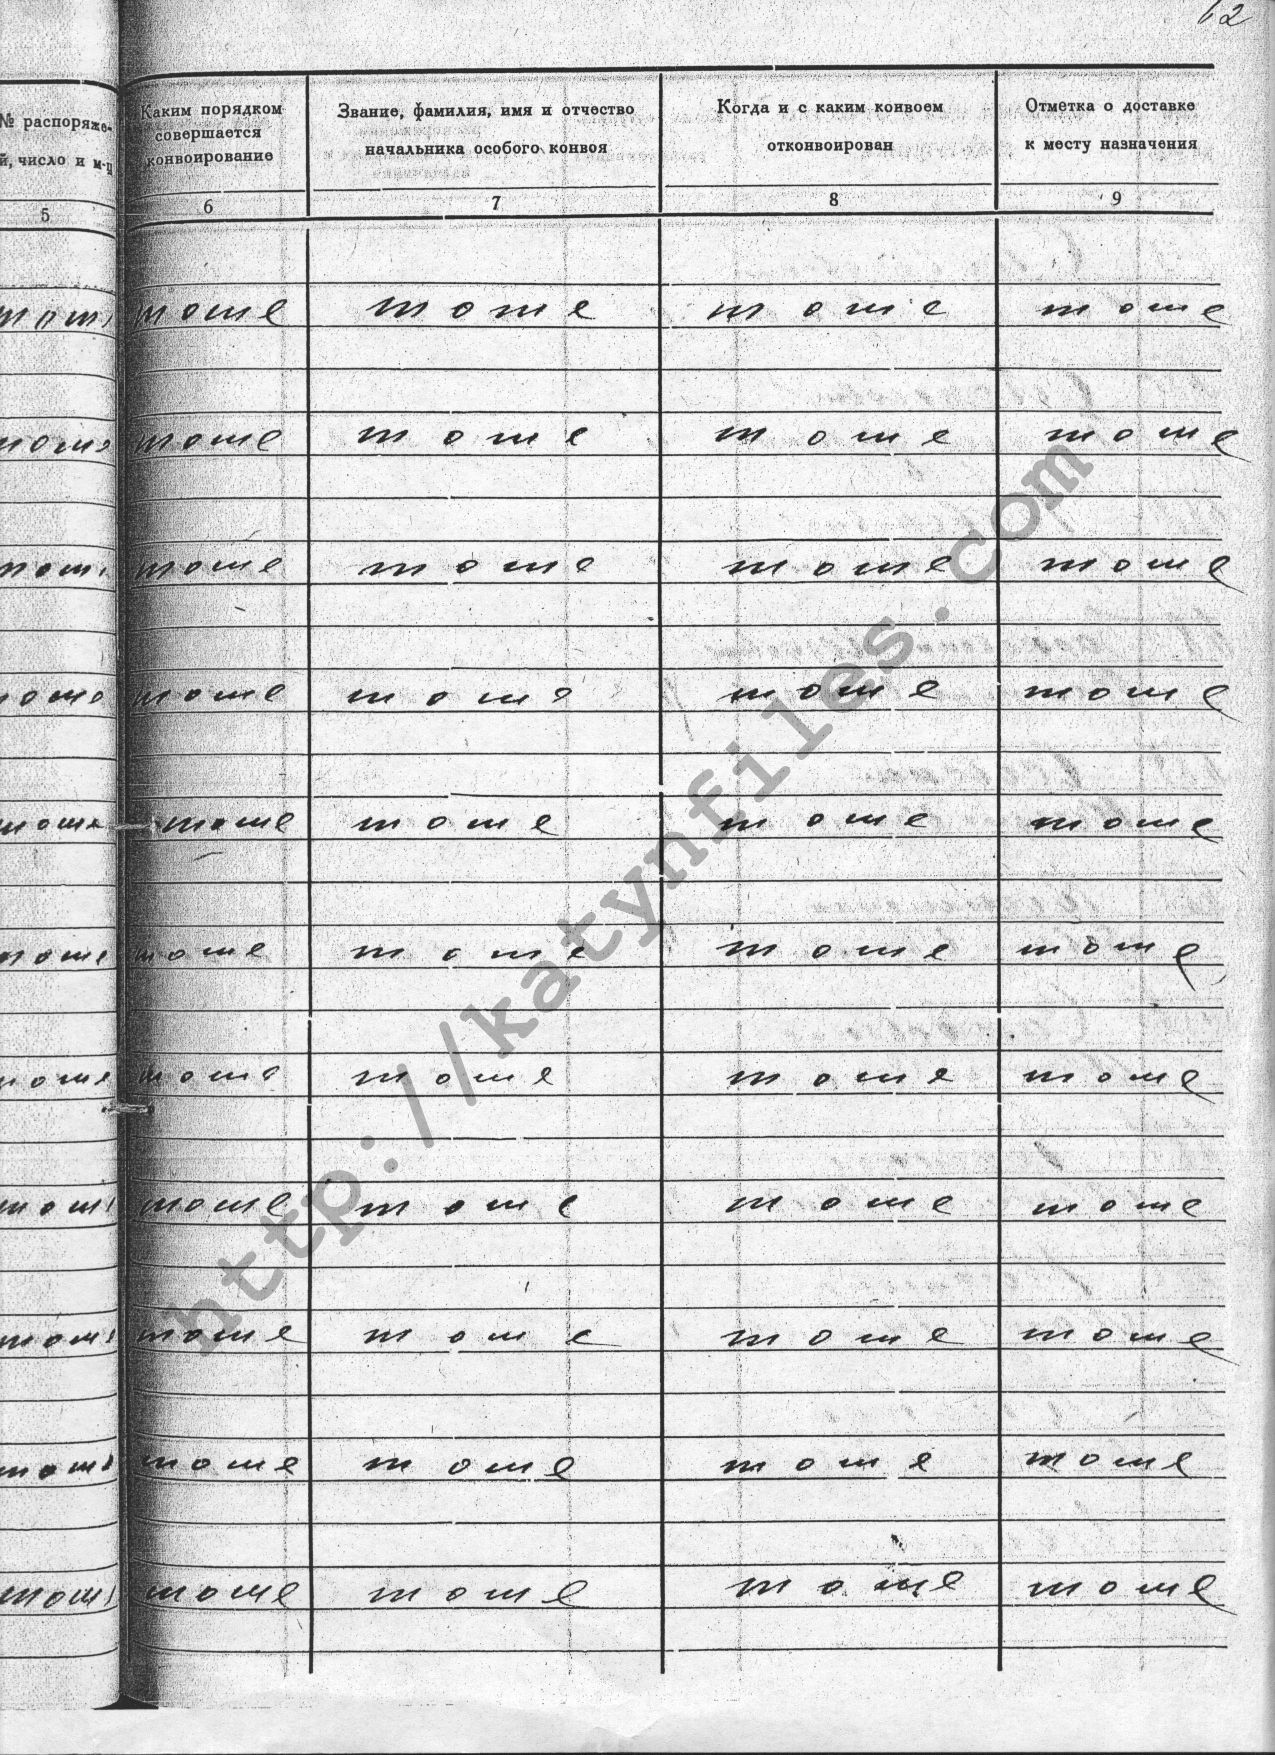 62
№ распоряже-
й, число и м-ц
Каким порядком
совершается
конвоирование
Звание, фамилия, имя и отчество
начальника особого конвоя
Когда и с каким конвоем
отконвоирован
Отметка о доставке
к месту назначения
5 6 7 8 9
тоше тоше тоше тоше тоше
тоше тоше тоше тоше тоше
тоше тоше тоше тоше тоше
тоше тоше тоше тоше тоше
тоше тоше тоше тоше тоше
тоше тоше тоше тоше тоше
тоше тоше тоше тоше тоше
тоше тоше тоше тоше тоше
тоше тоше тоше тоше тоше
тоше тоше тоше тоше тоше
тоше тоше тоше тоше тоше
http://katynfiles.com